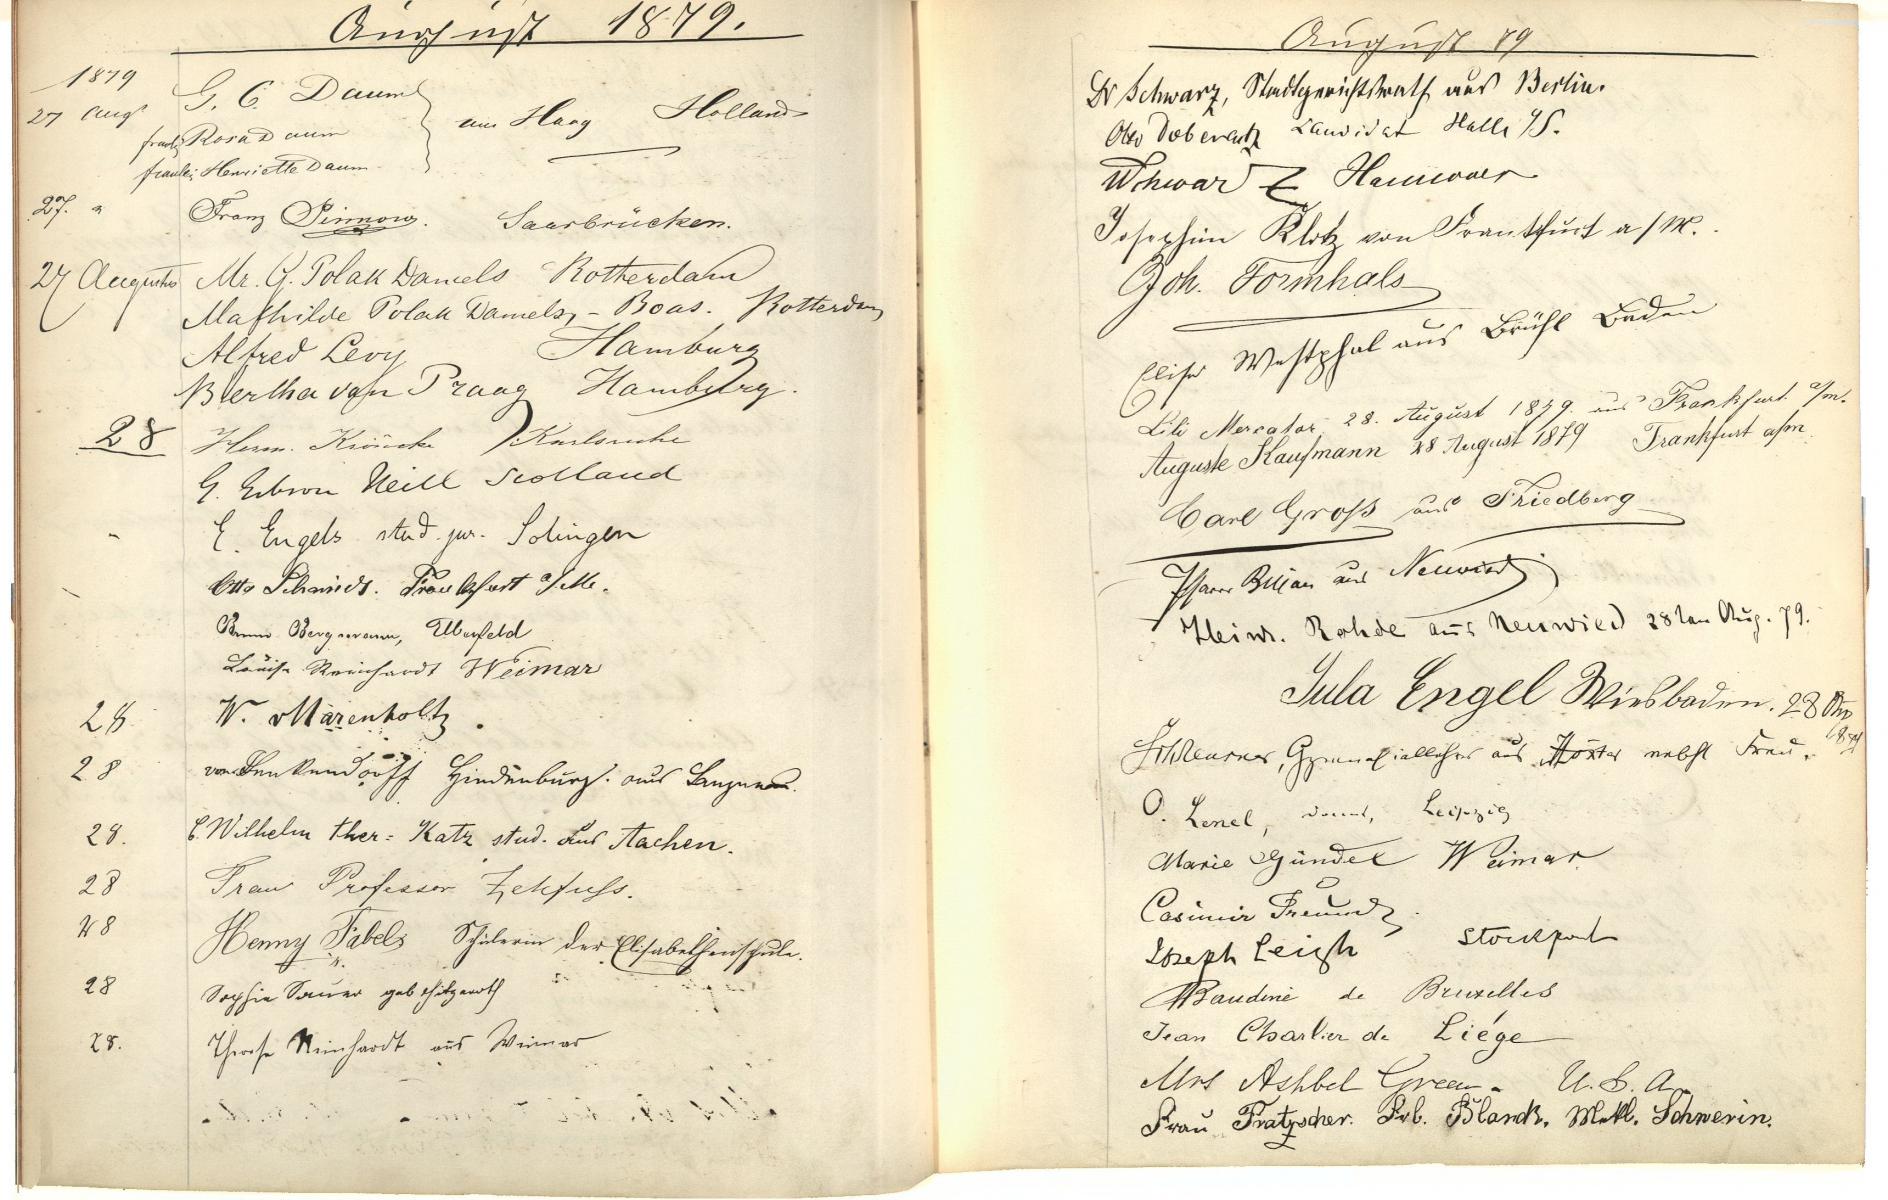 August 1879.
1879
27 Aug G. C. Daum
aus Haag Holland
Rosa Daum
Henriette Daum
27. " Franz Saarbrücken.
27 Augustus Mr. G. Polak Daniels Rotterdam
Mathilde Polak Daniels, - Boas. Rotterdam
Alfred Levy Hamburg
Bertha van Praag Hamburg.
28 Herm. Karlsruhe
G. Neill Scotland
E. Engels stud. jur. Solingen
Otto Schmidt. Frankfurt a/M.
Bruno Bergmann, Elberfeld
Louise Reinhardt Weimar
28 W. vMarenholtz.
28 aus
28. C. Wilhelm ther = Katz stud. aus Aachen.
28 Frau Professor Zehfuss.
28 Henny Fabels Schülerin der Elisabethenschule.
28 Sophie Sauer geb
28. Therese Reinhardt aus Weimar
August 79
Dr Schwarz, Stadtgerichtsrath aus Berlin.
Otto Candidat Halle a/S.
Hannover
Josephine Klotz von Frankfurt a/M.
Joh. Formhals
Elise Westphal aus Brühl Baden
Lili Mercator 28. August 1879. aus Frankfurt a/m.
Auguste Kaufmann 28 August 1879 Frankfurt a/m
Carl Gross aus Friedberg
Pfarrer aus Neuwied
Heinr. Rohde aus Neuwied 28ten Aug. 79.
Jula Engel Wiesbaden. 28
Gymnasiallehrer aus Höxter nebst Frau.
O. Lenel, Leipzig
Marie Gündel Weimar
Casimir Freund
Joseph Leigh Stockport
Baudine de Bruxelles
Jean Charlier de Liége
Mrs Ashbel Green - U.S.A.
Frau Fratzscher. Frl. Blanck. Mekl. Schwerin.